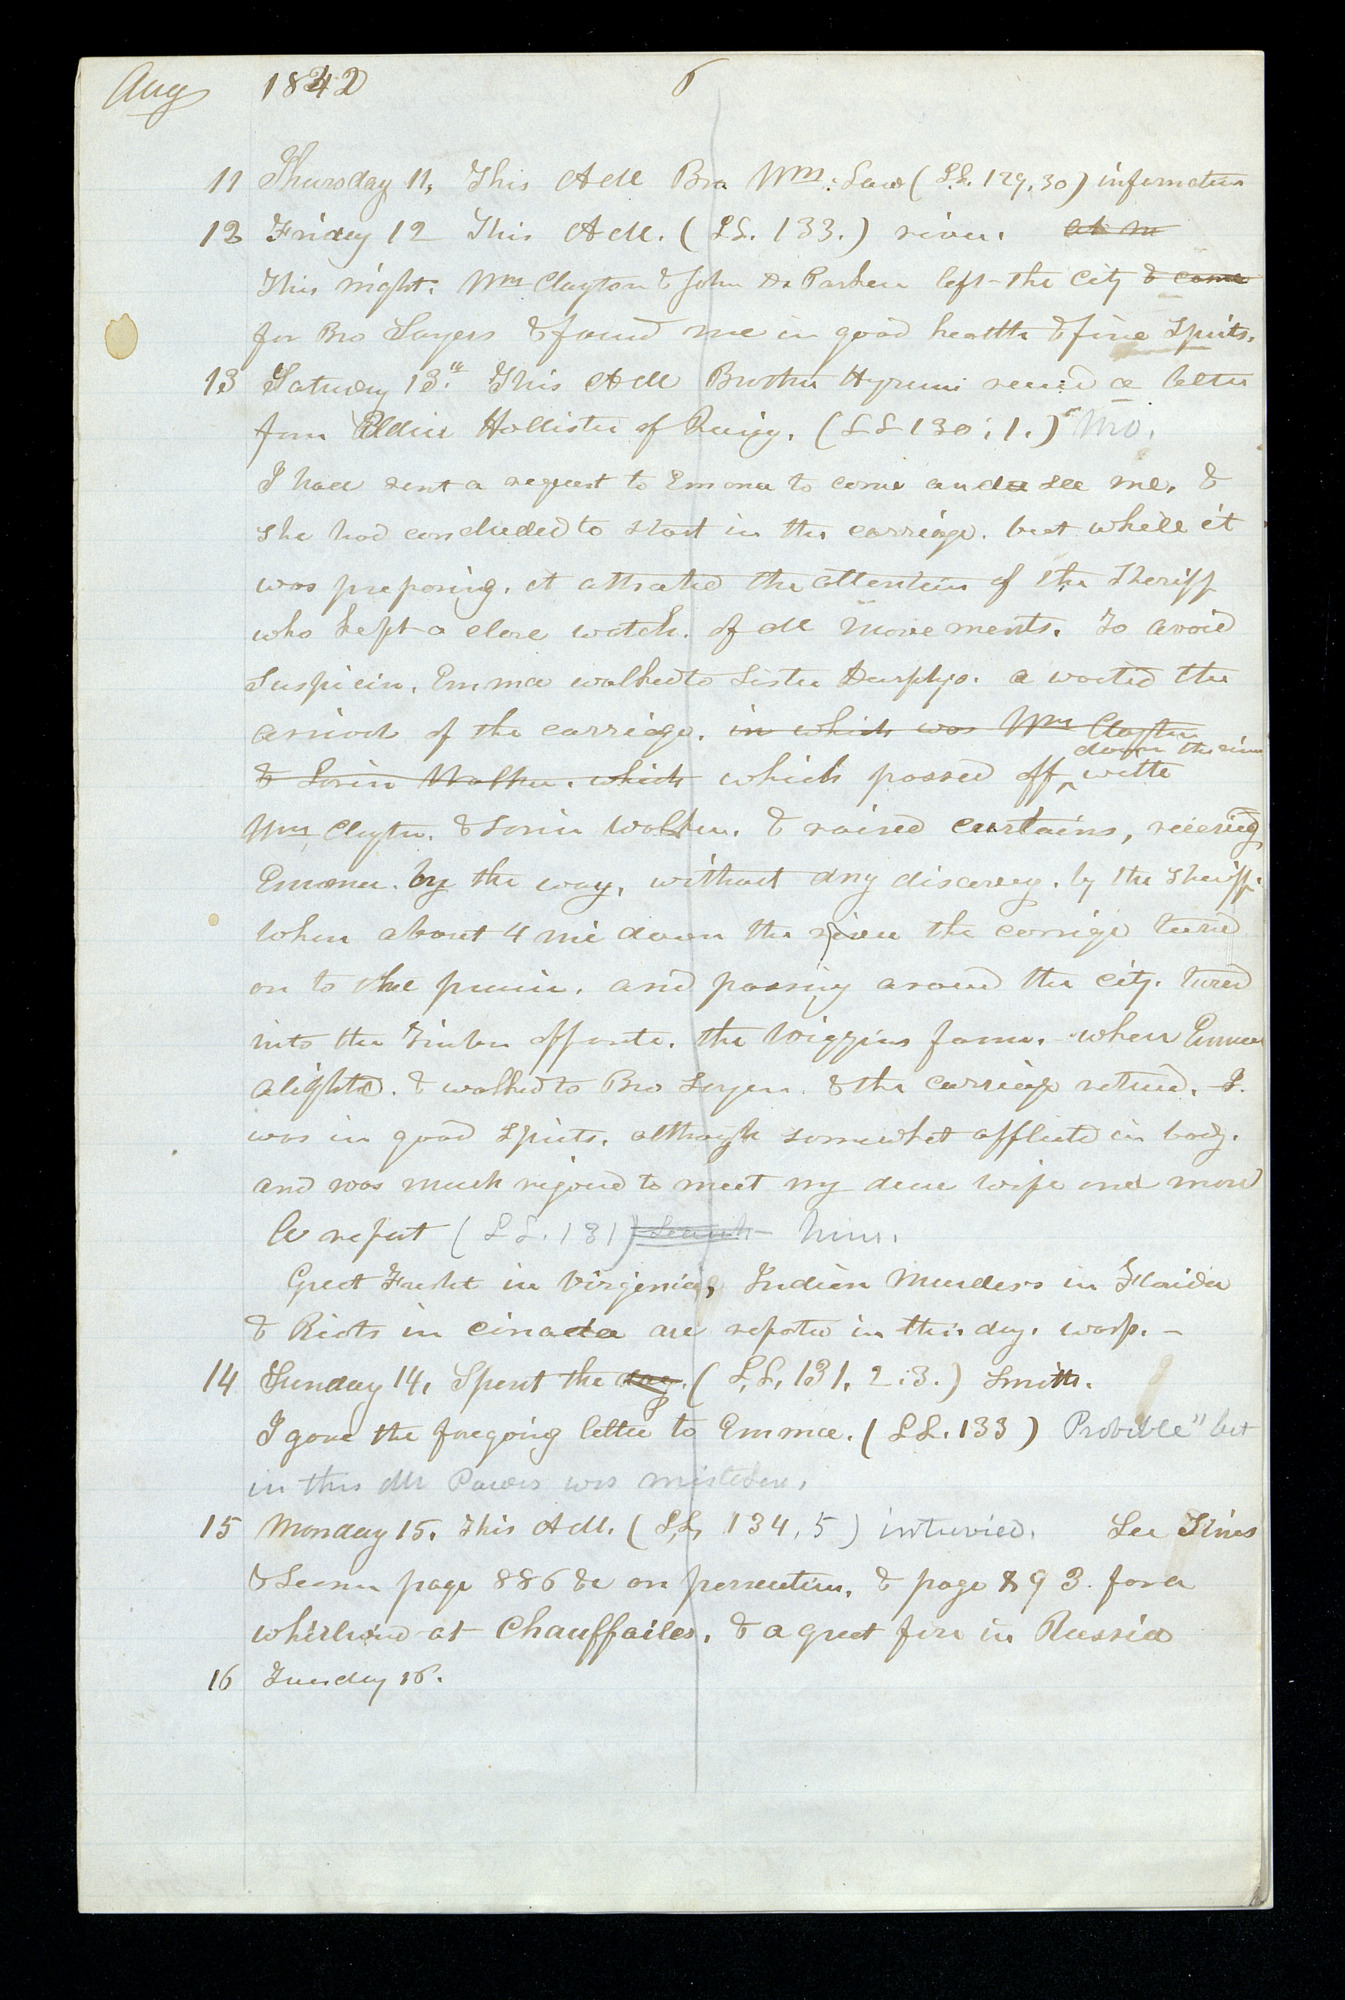 Aug 1842 6
11 Thursday 11, This A M Bro Wm. Law (L.L. 129, 30) information
12 Friday 12 This A.M. (L.L. 133.) river. at m
This night. Wm Clayton & John D. Parker left the city & came
for Bro Sayers & found me in good health & fine spirits.
13 Saturday 13.th This A M Brother Hyrum recevd a letter
from Elder Hollister of Quincy. (L L 130; 1.) " Mo.
I had sent a request to Emma to come and see me, &
she had concluded to start in the carriage. but while it
was preparing, it attracted the attention of the Sheriff
who kept a close watch. of all movements. To avoid
suspicion, Emma walked to Sister Durphys. a waited the
arrival of the carriage. in which was Wm Clayton
& Lorin Walker. which which passed off with
down the river
Wm Clayton. & Lorin Walker. & raised curtains, receiving
Emma. by the way, without any discovery. by the sheriff.
When about 4 mi down the river the carrige turned
on to the prairie. and passing around the city. turned
into the Timber opposite. the Wiggins farm. when Emma
alightd. & walked to Bro Sayers. & the carriage returned. I
was in good spirits. although somewhat afflicted in body.
and was much rejoiced to meet my dear wife once more
A report (L L. 131) Search him.
Great Freshet in Virginia, Indian Murders in Florida
& Riots in canada are reported in this days. warp. —
14 Sunday 14, Spent the day. (L.L. 131, 2:3.) Smith.
I gave the foregoing letter to Emma. (L L. 133) Probible" but
in this Mr Powers was mistaken.
15 Monday 15. This A M. (L.L. 134, 5) intervied. See Times
& Seasons page 886 &c on persecution, & page 893. for a
whirlwind at Chauffailes, & a great fire in Russia
16 Tuesday 16.